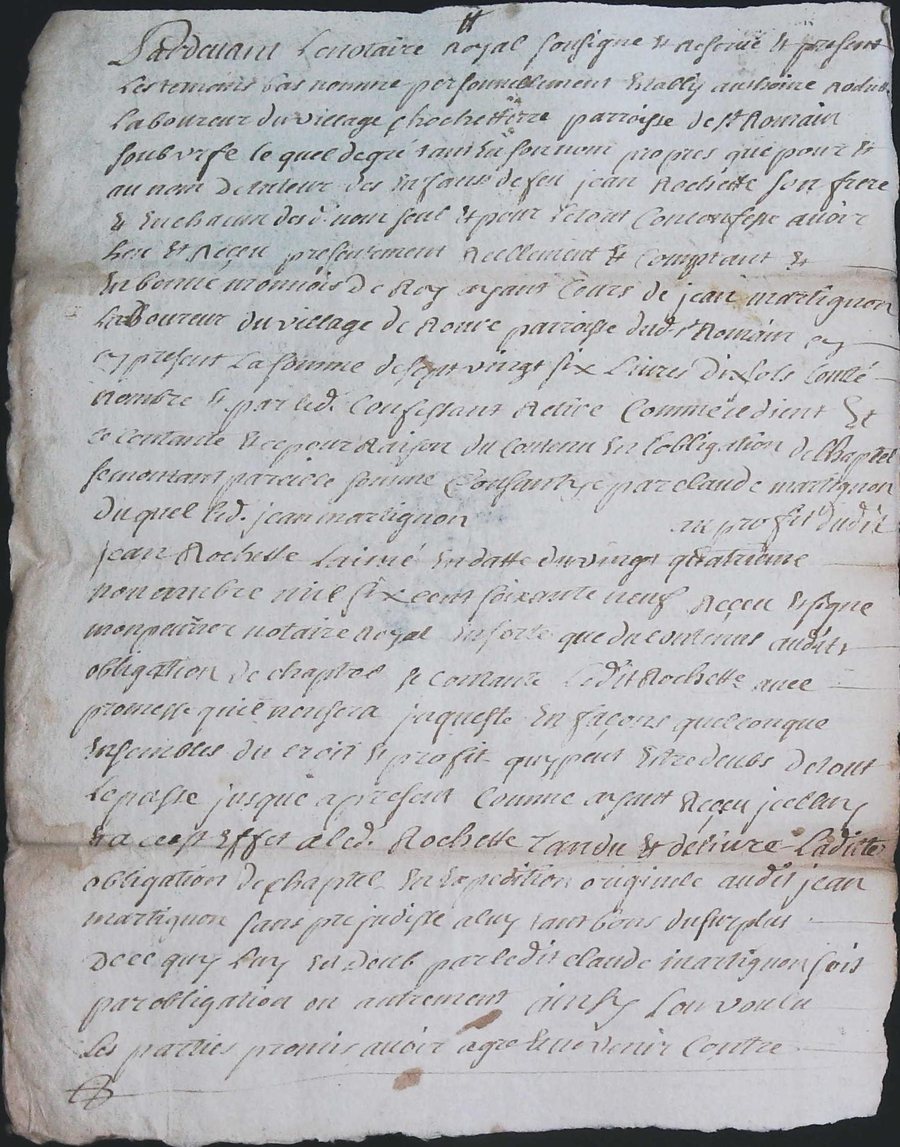 Pardevant Lenotaire Royal soubsigne Et Reserve Et present
Les temoins bas nomme personnellement Estably anthoine
Laboureur du village parroisse de st Romain
soub urfe le quel de gré tant En son nom propres que pour Et
au nom De tuteur des Enfans de feu jean Rochette son frere
Et En chacun desd. nom seul Et pour Letout Con confesse avoir
heu Et Reçeu presentement Reellement Et Comptant Et
En bonne monnois De Roy ayant Cours de jean martignon
Laboureur du village de parroisse dud. st Romain
cy present La somme de sept vingt six Livres dix sols
nombre Et par led. Confessant Retire Comme il dient Et
se contante Et ce pour Raison du Contenu En Lobligation de Chaptel
se montant pareille somme par claude martignon
Du quel led. jean martignon au profit dudit
jean Rochette Laisné En datte du vingt quatrieme
novambre mil six cent soixante neuf Reçeu Et signe
notaire Royal En sorte que du contenus audit
obligation De chaptel se contante Ledit Rochette avec
promesse quil nen sera jn queste En façons quelconque
Ensembles du croit Et profit quy peut Estre deubs De tout
Le passe jusque a present Comme ayant Reçeu jcelluy
Et a cest Effet a led. Rochette Randu Et délivre Laditte
obligation De chaptel En Expedition originele audit jean
martignon sans prejudisse a luy Dusurplus
De ce quy Luy Est Deub par ledit claude martignon soit
par obligation ou autrement ainsy Lon voulu
Les parties promis avoir agre Et ne venir Contre